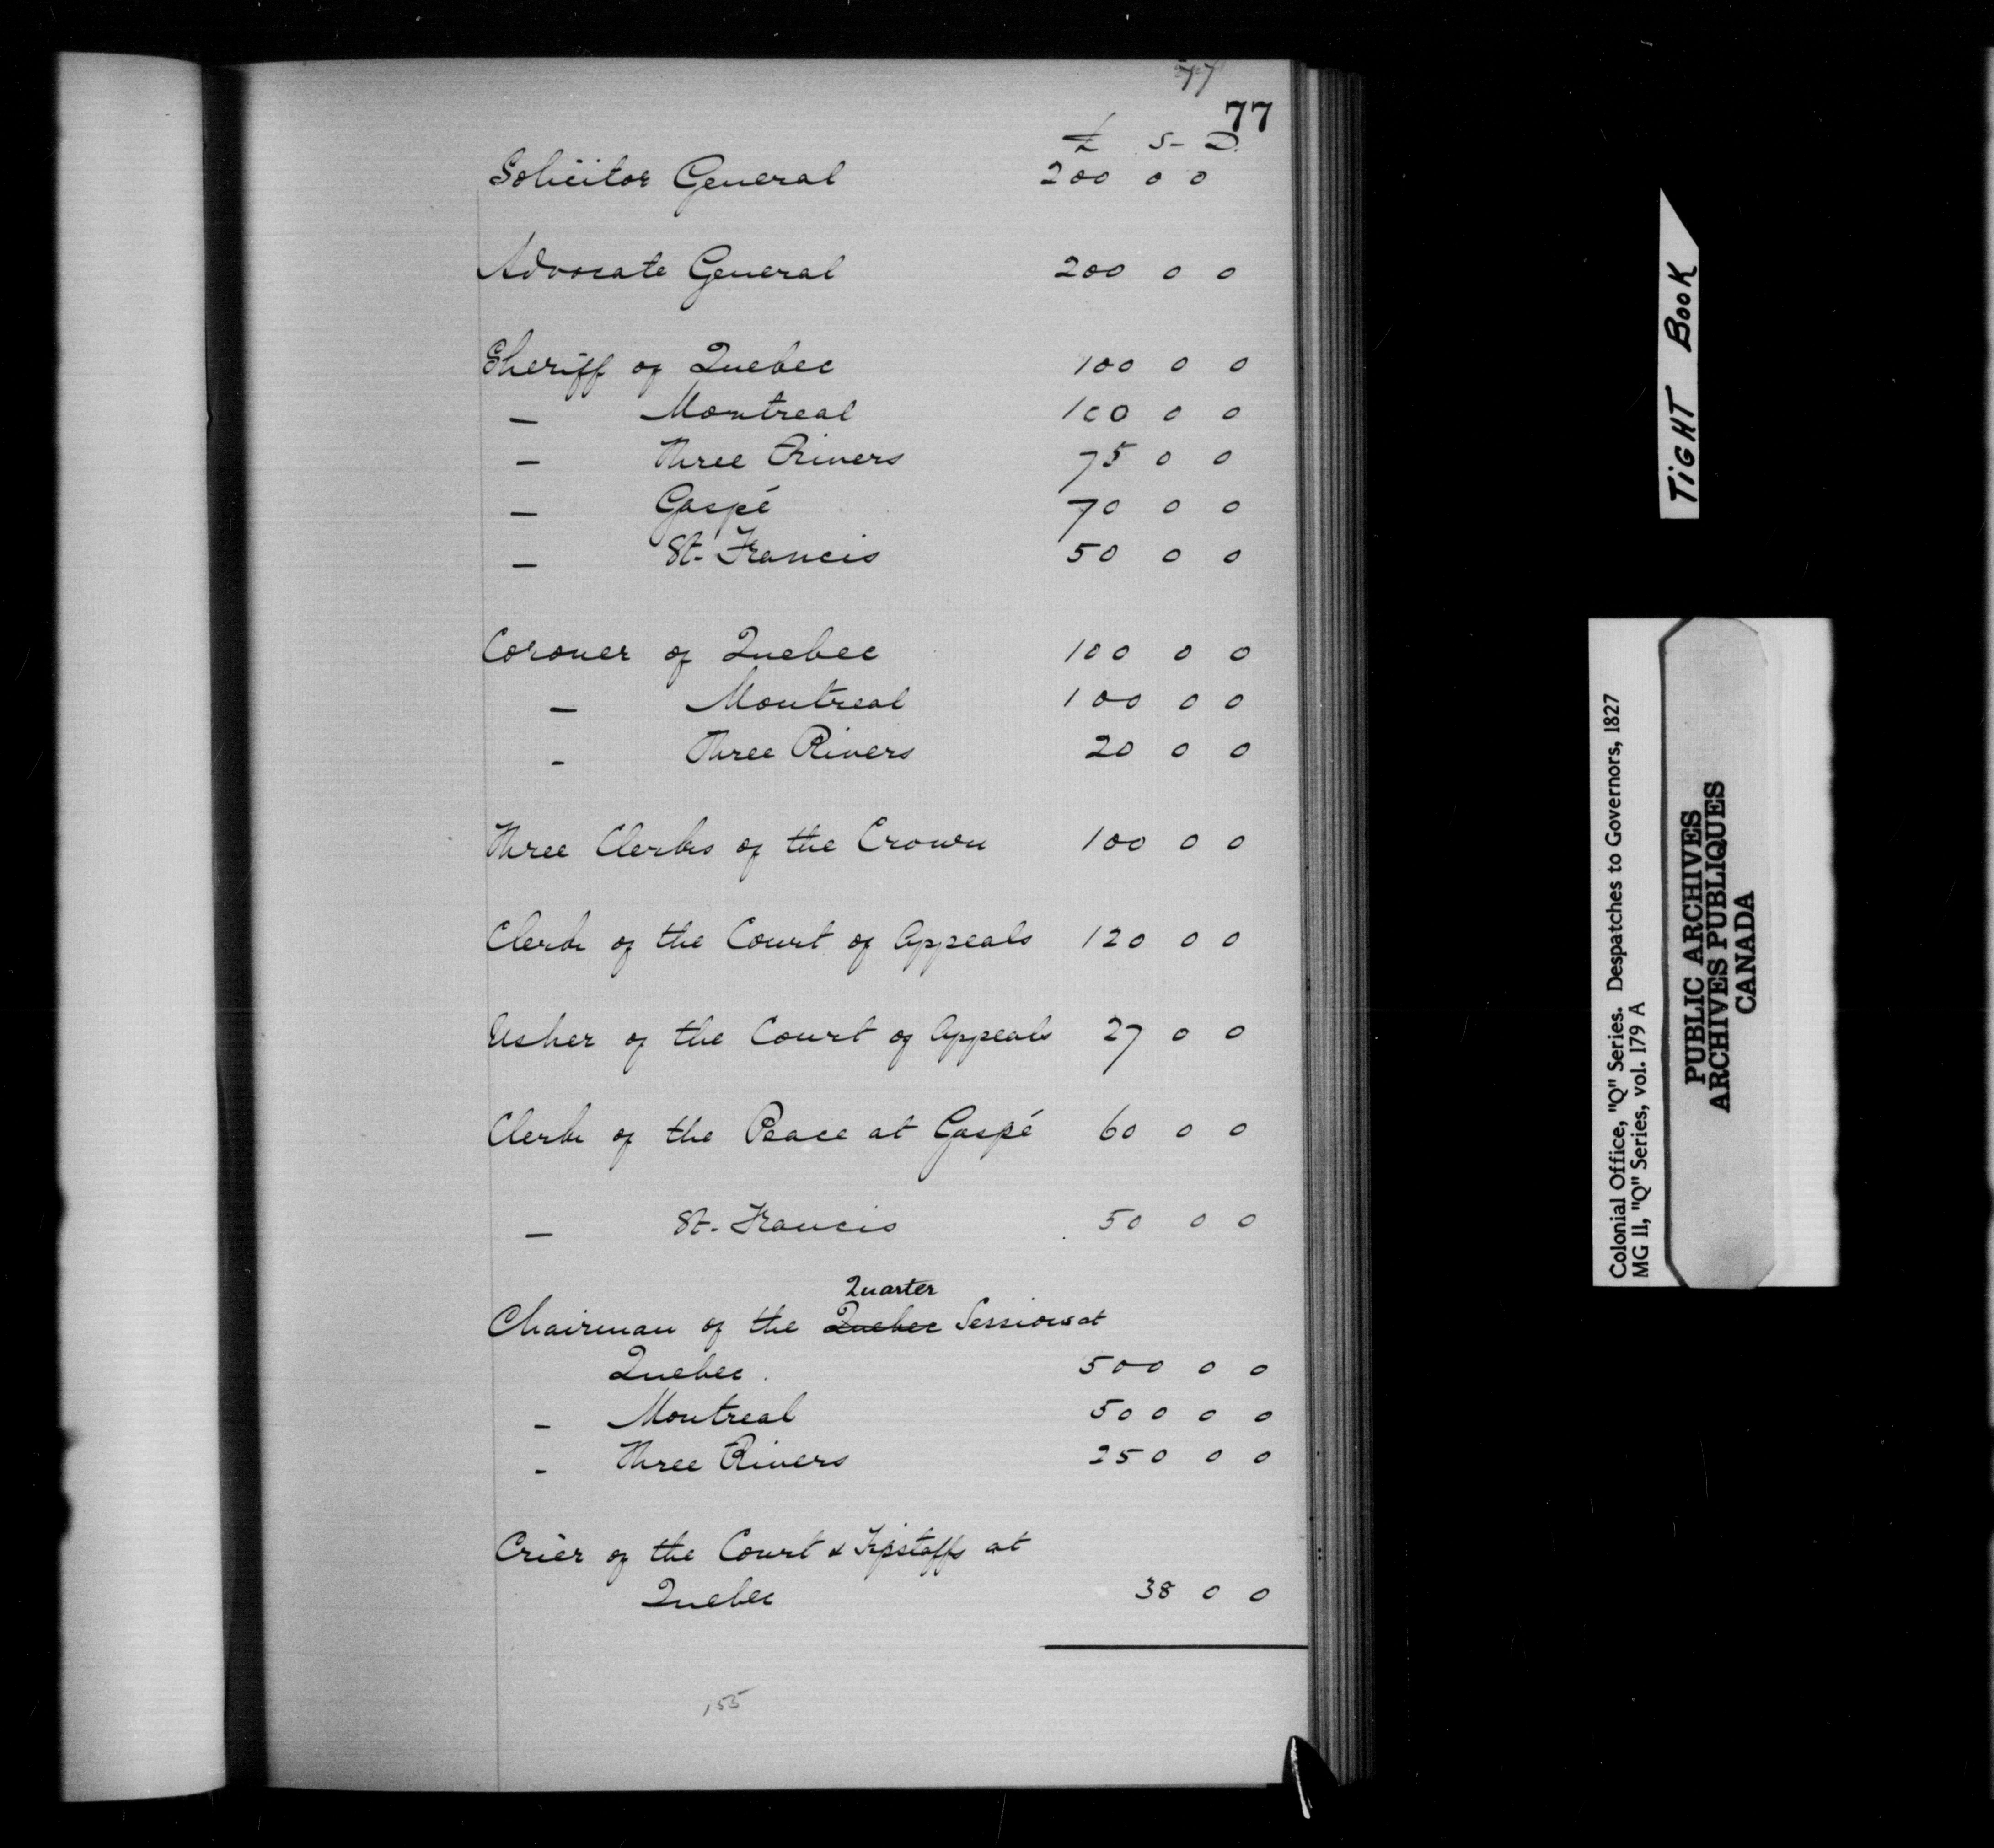 77
£ S- D.
Solicitor General 200 0 0
Advocate General 200 0 0
Sheriff of Quebec 100 0 0
— Montreal 100 0 0
— Three Rivers 75 0 0
— Gaspé 70 0 0
— St. Francis 50 0 0
Coroner of Quebec 100 0 0
— Montreal 100 0 0
- Three Rivers 20 0 0
Three Clerks of the Crown 100 0 0
Clerk of the Court of Appeals 120 0 0
Usher of the Court of Appeals 27 0 0
Clerk of the Peace at Gaspé 60 0 0
— St. Francis 50 0 0
Quarter
Chairman of the Quebec Sessions at
Quebec. 500 0 0
- Montreal 500 0 0
- Three Rivers 250 0 0
Crier of the Court & Tipstaffs at
Quebec 38 0 0
155
TIGHT BOOK
Colonial Office, "Q" Series. Despatches to Governors, 1827
MG 11, "Q" Series, vol. 179 A
PUBLIC ARCHIVES
ARCHIVES PUBLIQUES
CANADA